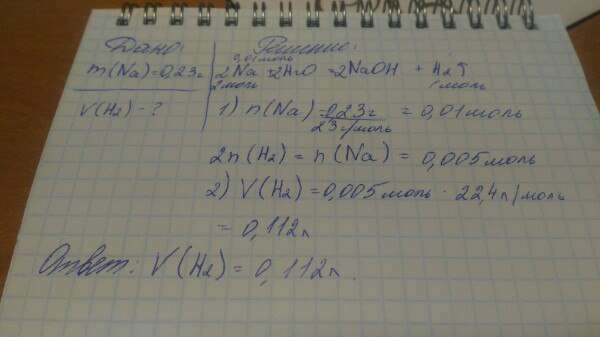 Дано:
m(Na)=0,23г
V(H2) - ?
Решение:
0,01моль
2Na + 2H2O = 2NaOH + H2↑
2моль 1моль
1) n(Na) = 0,23г / 23г/моль = 0,01моль
2n(H2) = n(Na) = 0,005моль
2) V(H2) = 0,005моль · 22,4л/моль
= 0,112л
Ответ: V(H2) = 0,112л.